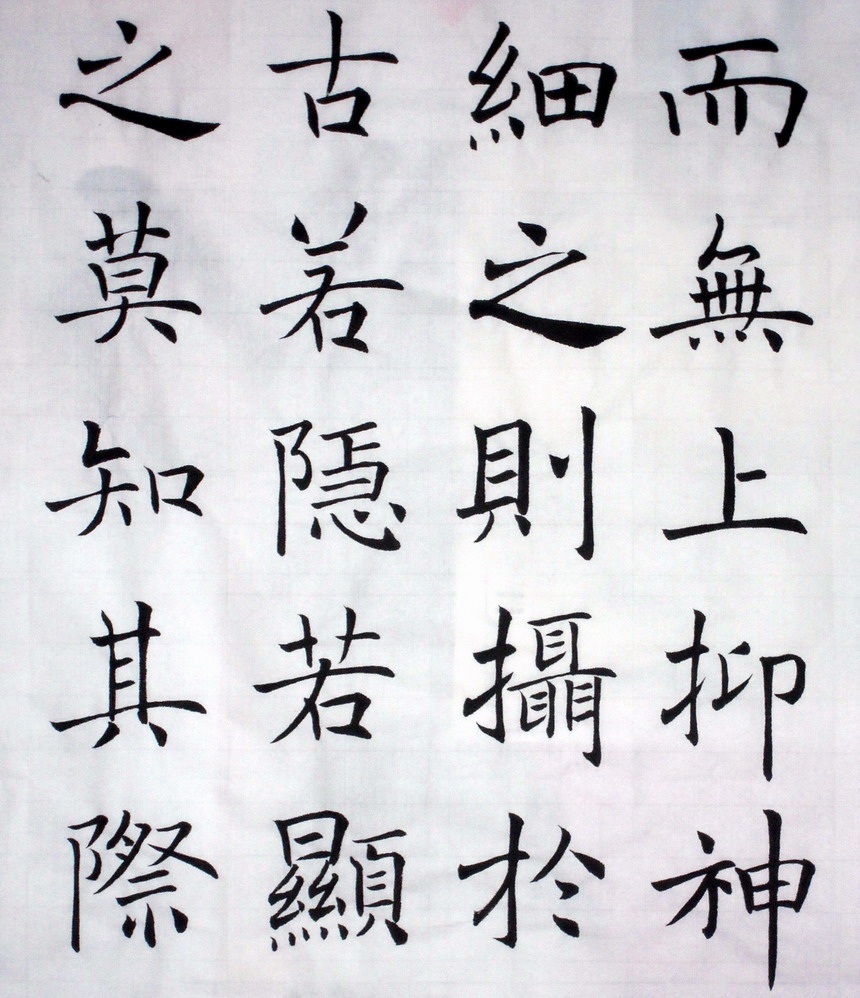 而無上抑神
細之則攝於
古若隱若顯
之莫知其際